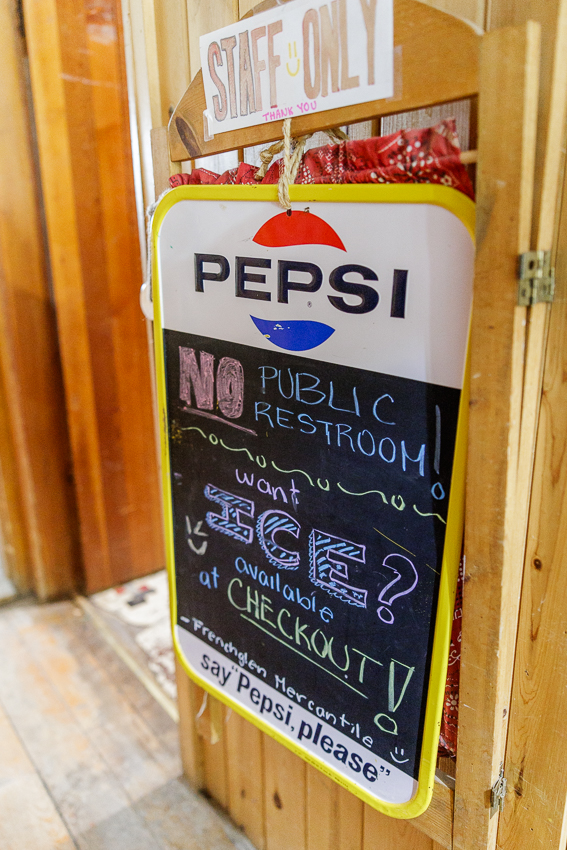 STAFF ONLY
THANK YOU
PEPSI
®
NO PUBLIC
RESTROOM!
want
ICE?
available
at CHECKOUT!
- Frenchglen Mercantile
say "Pepsi, please"